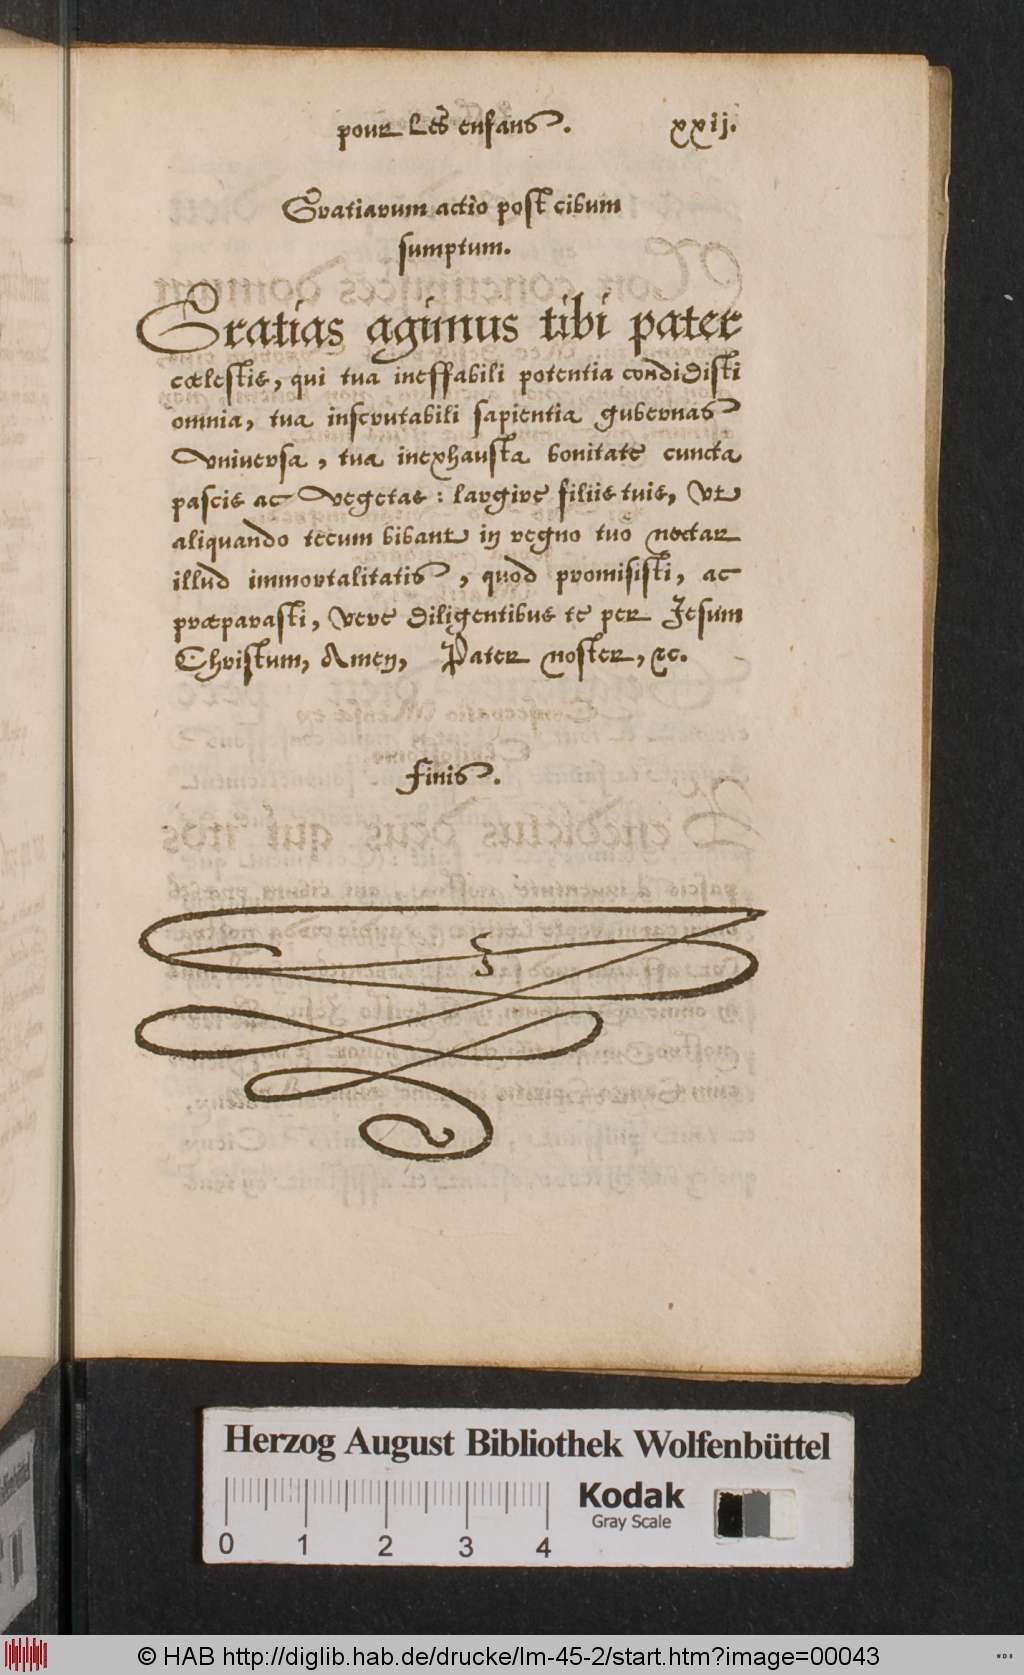 pour les enfans. xxij.
Gratiarum actio post cibum
sumptum.
Gratias agimus tibi pater
cœlestis, qui tua ineffabili potentia condidisti
omnia, tua inscrutabili sapientia gubernas
vniuersa, tua inexhausta bonitate cuncta
pascis ac vegetas: largire filiis tuis, vt
aliquando tecum bibant in regno tuo nectar
illud immortalitatis, quod promisisti, ac
præparasti, vere diligentibus te per Jesum
Christum, Amen, Pater noster, &c.
Finis.
Herzog August Bibliothek Wolfenbüttel
Kodak
Gray Scale
0 1 2 3 4
© HAB http://diglib.hab.de/drucke/lm-45-2/start.htm?image=00043